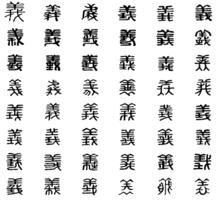 義 義 義 義 義 義
義 義 義 義 義 義
義 義 義 義 義 義
義 義 義 義 義 義
義 義 義 義 義 義
義 義 義 義 義 義
義 義 義 義 義 義
義 義 義 義